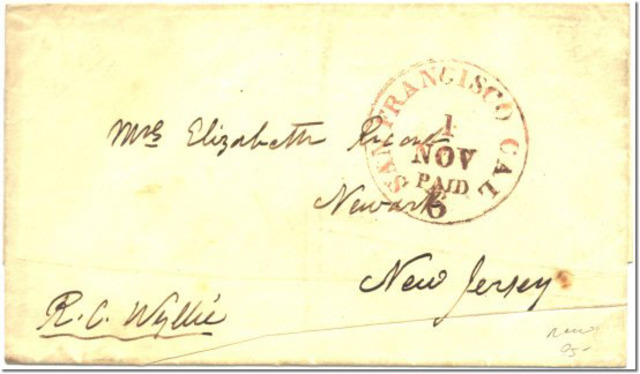 SAN FRANCISCO CAL
1
NOV
PAID
6
Mrs Elizabeth Ricord
Newark
New Jersey
R. C. Wyllie
95-